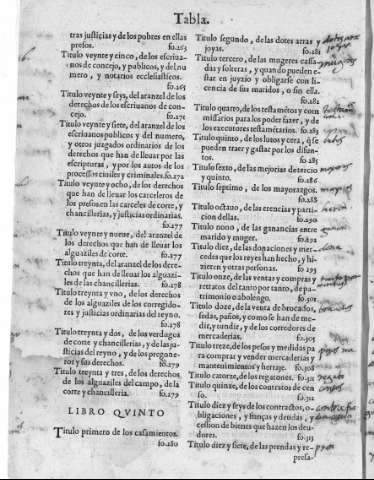 Tabla.
tras justicias y de los pobres en ellas
presos. fo.263
Titulo veynte y cinco, de los escriua-
nos de concejo, y publicos, y del nu
mero, y notarios ecclesiasticos.
fo.265
Titulo veynte y seys, del aranzel de los
derechos de los escriuanos de con-
cejo. fo.271
Titulo veynte y siete, del aranzel de los
escriuanos publicos y del numero,
y otros juzgados ordinarios de los
derechos que han de lleuar por las
escripturas, y por los autos de los
processos ciuiles y criminales. fo.272
Titulo veynte y ocho, de los derechos
que han de lleuar los carceleros de
los presos en las carceles de corte, y
chancillerias, y justicias ordinarias.
fo.277
Titulo veynte y nueue, del aranzel de
los derechos que han de lleuar los
alguaziles de corte. fo.277
Titulo treynta, del aranzel de los dere-
chos que han de lleuar los alguazi-
les de las chancillerias. fo.278
Titulo treynta y vno, de los derechos
de los alguaziles de los corregido-
res y justicias ordinarias del reyno.
fo.278
Titulo treynta y dos, de los verdugos
de corte y chancillerias, y de las jus-
ticias del reyno, y de los pregone-
ros y sus derechos. fo.279
Titulo treynta y tres, de los derechos
de los alguaziles del campo, de la
corte y chancilleria. fo.279
LIBRO QVINTO
Titulo primero de los casamientos.
fo.280
Titulo segundo, de las dotes arras y
joyas. fo.281
Titulo tercero, de las mugeres casa-
das y solteras, y quando pueden e-
star en juyzio y obligarse con li-
cencia de sus maridos, o sin ella.
fo.282
Titulo quarto, de los testamētos y com
missarios para los poder fazer, y de
los executores testamētarios. fo.283
Titulo quinto, de los lutos y cera, q̃ se
pueden traer y gastar por los difun-
tos. fo.285
Titulo sexto, de las mejorias de tercio
y quinto. fo.286
Titulo septimo, de los mayorazgos.
fo.288
Titulo octauo, de las erencias y parti-
cion dellas. fo.290
Titulo nono, de las ganancias entre
marido y muger. fo.292
Titulo diez, de las donaciones y mer-
cedes que los reyes han hecho, y hi-
zieren y otras personas. fo 293
Titulo onze, de las ventas y compras y
retratos del tanto por tanto, de pa-
trimonio o abolengo. fo.301
Titulo doze, de la venta de brocados,
sedas, paños, y como se han de me-
dir, y tundir, y de los corredores de
mercaderias. fo.305
Titulo treze, de los pesos y medidas pa
ra comprar y vender mercaderias y
mantenimientos y herraje. fo.308
Titulo catorze, de los regatones. fo.312
Titulo quinze, de los contratos de cen
sos. fo.312
Titulo diez y seys de los contractos, o-
bligaciones, y fianças y deudas, y
cession de bienes que hazen los deu-
dores. fo.313
Titulo diez y siete, de las prendas y re-
presa-